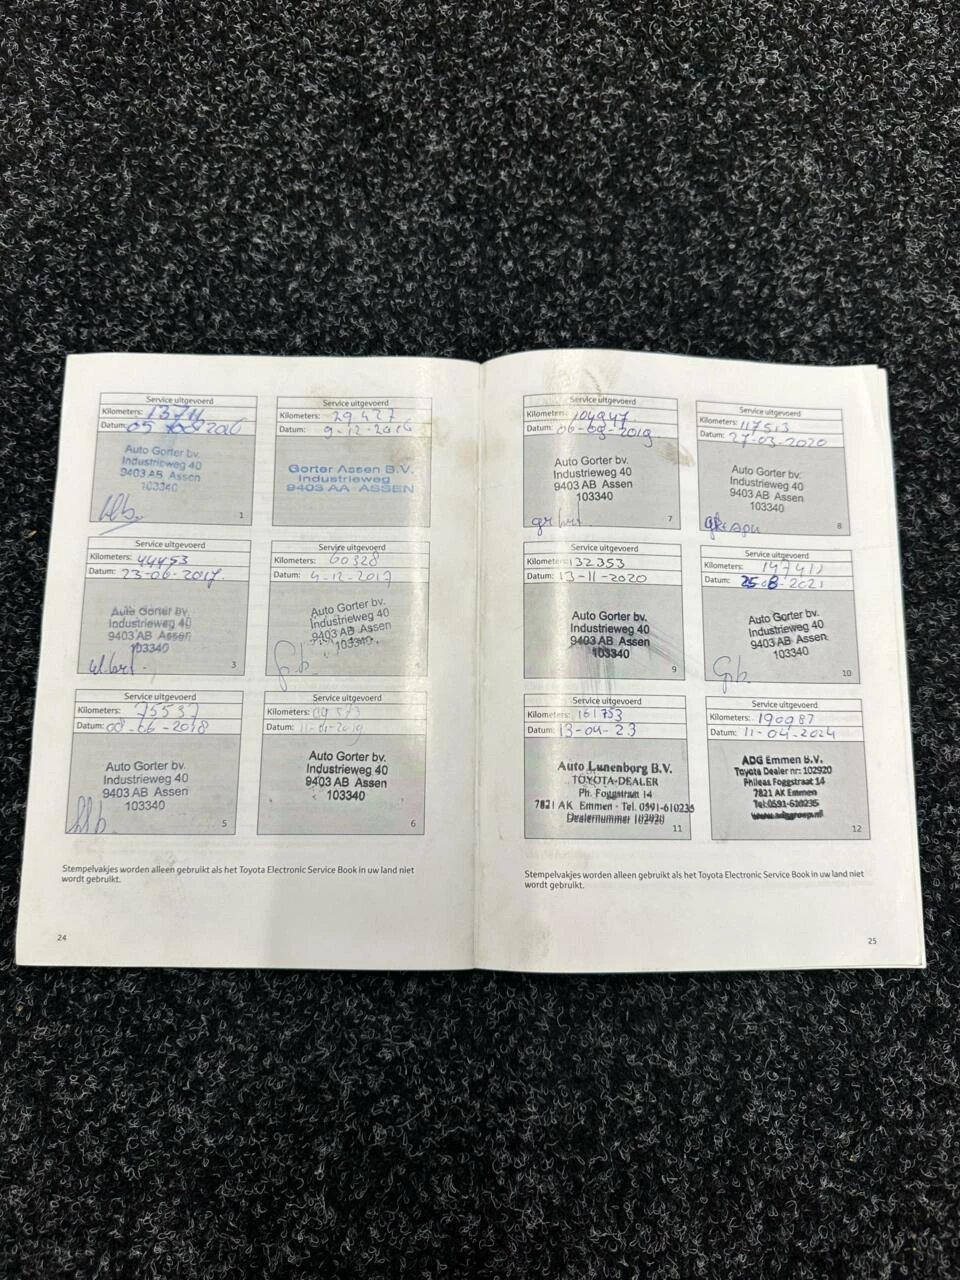 Service uitgevoerd
Kilometers: 13711
Datum: 05 2016
Auto Gorter bv.
Industrieweg 40
9403 AB Assen
103340
1
Service uitgevoerd
Kilometers: 29427
Datum: 9-12-2016
Gorter Assen B.V.
Industrieweg
9403 AA ASSEN
Service uitgevoerd
Kilometers: 44453
Datum: 23-06-2017.
Auto Gorter bv.
Industrieweg 40
9403 AB Assen
103340
3
Service uitgevoerd
Kilometers: 60328
Datum: 4-12-2017
Auto Gorter bv.
Industrieweg 40
9403 AB Assen
103340
Service uitgevoerd
Kilometers: 75537
Datum: 08-06-2018
Auto Gorter bv.
Industrieweg 40
9403 AB Assen
103340
5
Service uitgevoerd
Kilometers:
Datum: 11-01-2019
Auto Gorter bv.
Industrieweg 40
9403 AB Assen
103340
6
Stempelvakjes worden alleen gebruikt als het Toyota Electronic Service Book in uw land niet
wordt gebruikt.
24
Service uitgevoerd
Kilometers: 104947
Datum: 06-09-2019
Auto Gorter bv.
Industrieweg 40
9403 AB Assen
103340
7
Service uitgevoerd
Kilometers: 117513
Datum: 27-03-2020
Auto Gorter bv.
Industrieweg 40
9403 AB Assen
103340
8
Service uitgevoerd
Kilometers: 132353
Datum: 13-11-2020
Auto Gorter bv.
Industrieweg 40
9403 AB Assen
103340
9
Service uitgevoerd
Kilometers: 147411
Datum: 25-08-2021
Auto Gorter bv.
Industrieweg 40
9403 AB Assen
103340
10
Service uitgevoerd
Kilometers: 161753
Datum: 13-04-23
Auto Lunenborg B.V.
TOYOTA-DEALER
Ph. Foggstraat 14
7821 AK Emmen - Tel. 0591-610235
Dealernummer 102920
11
Service uitgevoerd
Kilometers: 190987
Datum: 11-04-2024
ADG Emmen B.V.
Toyota Dealer nr: 102920
Phileas Foggstraat 14
7821 AK Emmen
Tel:0591-610235
www.adggroep.nl
12
Stempelvakjes worden alleen gebruikt als het Toyota Electronic Service Book in uw land niet
wordt gebruikt.
25